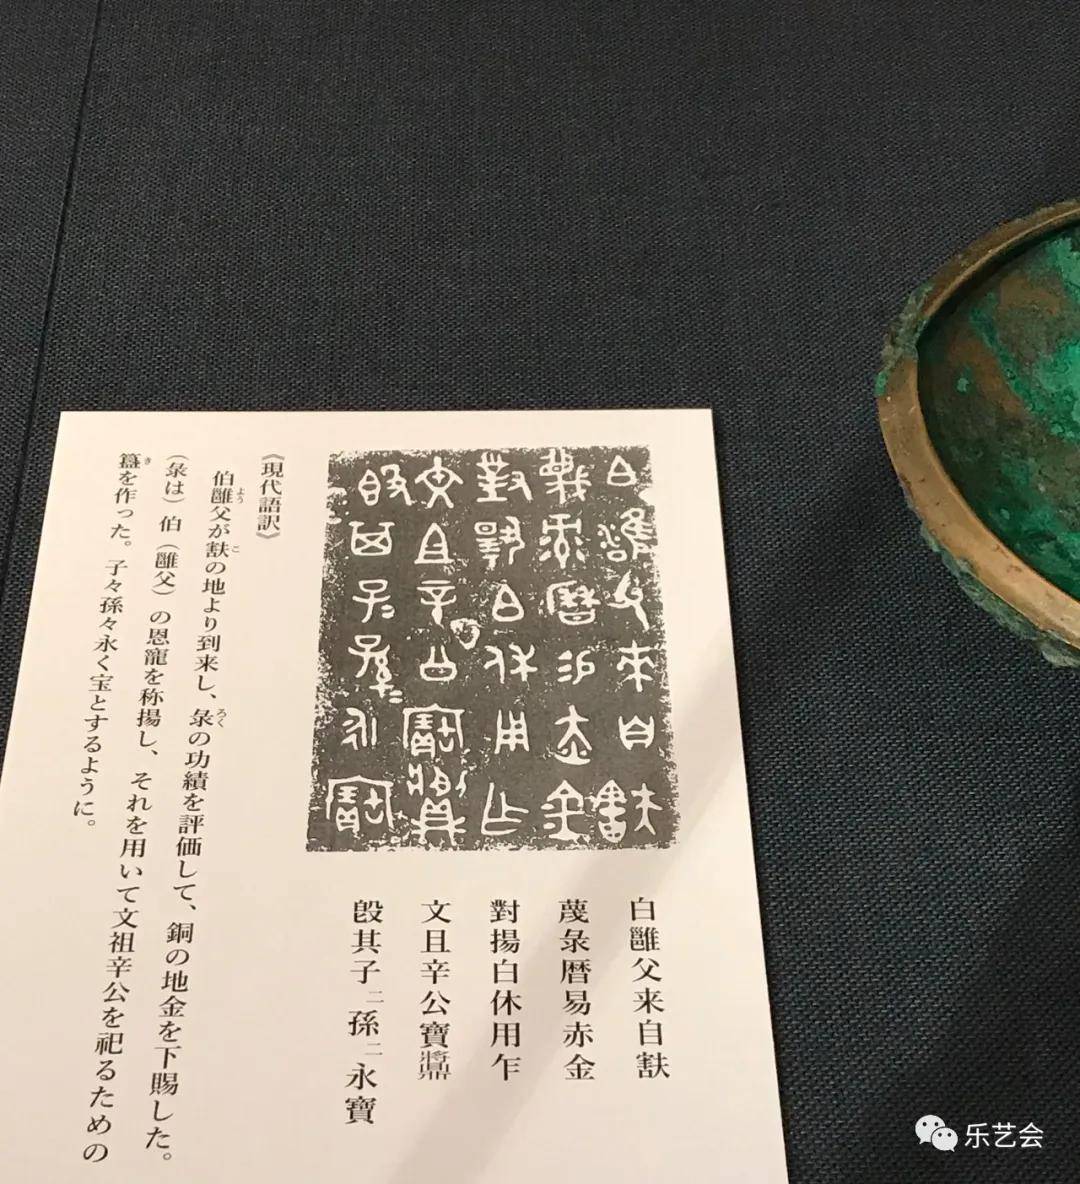 白雝父来自㝬
蔑彔暦易赤金
對揚白休用乍
文且辛公寶𩰫
𣪘其子二孫二永寶
《現代語訳》
伯雝父が㝬の地より到来し、彔の功績を評価して、銅の地金を下賜した。
よう
こ
ろく
(彔は)伯(雝父)の恩寵を称揚し、それを用いて文祖辛公を祀るための
簋を作った。子々孫々永く宝とするように。
き
乐艺会